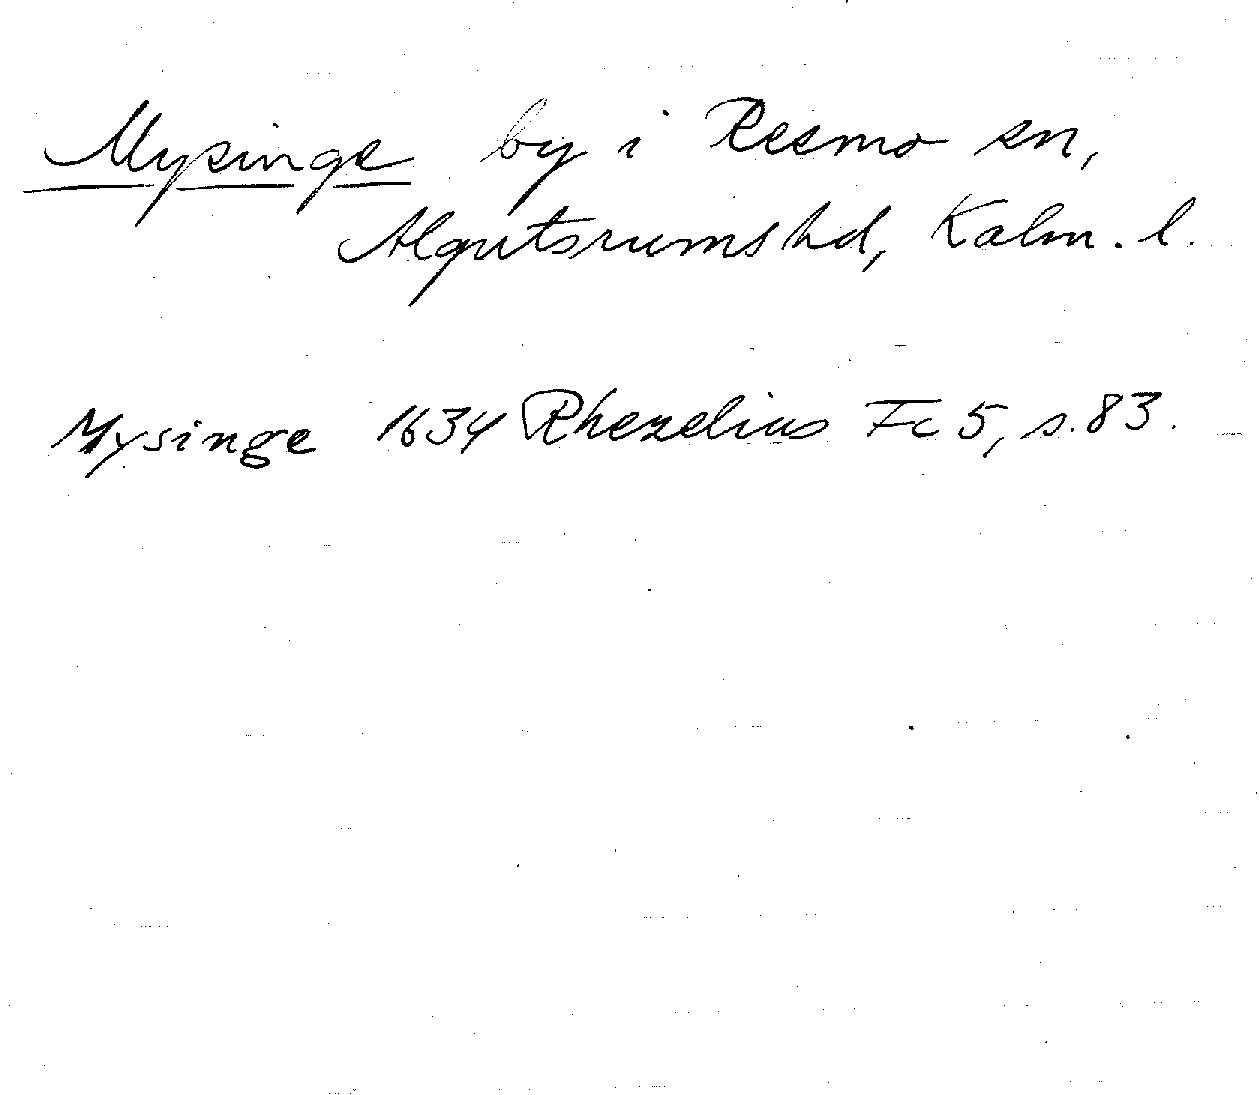 Mysinge by i Resmo sn,
Algutsrums hd, Kalm. l.
Mysinge 1634 Rhezelius Fc 5, s. 83.